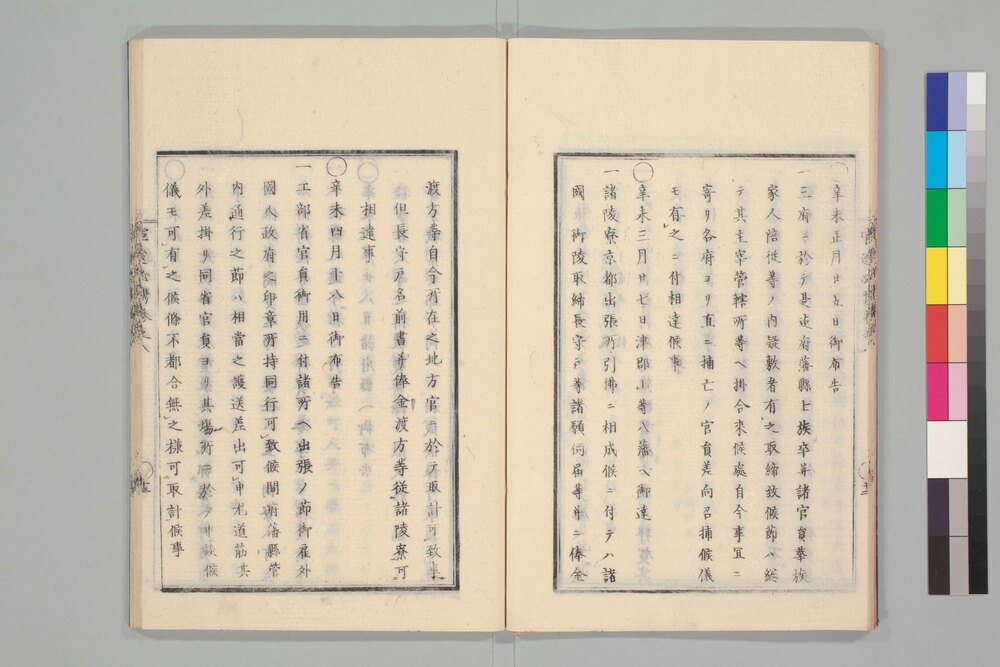 ○辛未正月廿五日御布告
一三府ニ於テ是迄府藩縣士族卒并諸官員華族
家人陪從等ノ内疑敷者有之取締致候節ハ総
テ其主宰管轄所等ヘ掛合來候處自今事冝ニ
寄リ各府ヨリ直ニ捕亡ノ官員差向召捕候儀
モ有之ニ付相達候事
○辛未三月廿七日津郡山等八藩ヘ御達
一諸陵寮京都出張所引拂ニ相成候ニ付テハ諸
國御陵取締長守戸等諸願伺届等并ニ俸金
渡方等自今所在之地方官於テ取計可致事
但長守戸名前書并俸金渡方等從諸陵寮可
相達事
○辛未四月十八日御布告
一工部省官員御用ニ付諸所ヘ出張ノ節御雇外
國人政府之印章所持同行可致候間府藩縣管
内通行之節ハ相當之護送差出可申尤道筋其
外差掛リ同省官員ヨリ其場所ニ於テ申談候
儀モ可有之候條不都合無之樣可取計候事
○